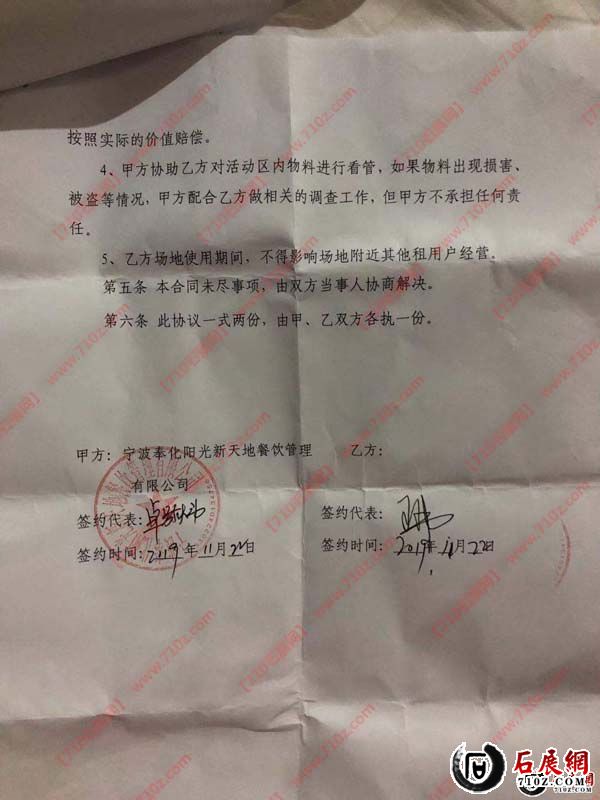 按照实际的价值赔偿。
4、甲方协助乙方对活动区内物料进行看管，如果物料出现损害、
被盗等情况，甲方配合乙方做相关的调查工作，但甲方不承担任何责
任。
5、乙方场地使用期间，不得影响场地附近其他租用户经营。
第五条 本合同未尽事项，由双方当事人协商解决。
第六条 此协议一式两份，由甲、乙双方各执一份。
甲方：宁波奉化阳光新天地餐饮管理 乙方：
有限公司
签约代表： 签约代表：
签约时间：2019年11月22日 签约时间：2019年11月22日
石展網
710Z.COM
www.710z.com